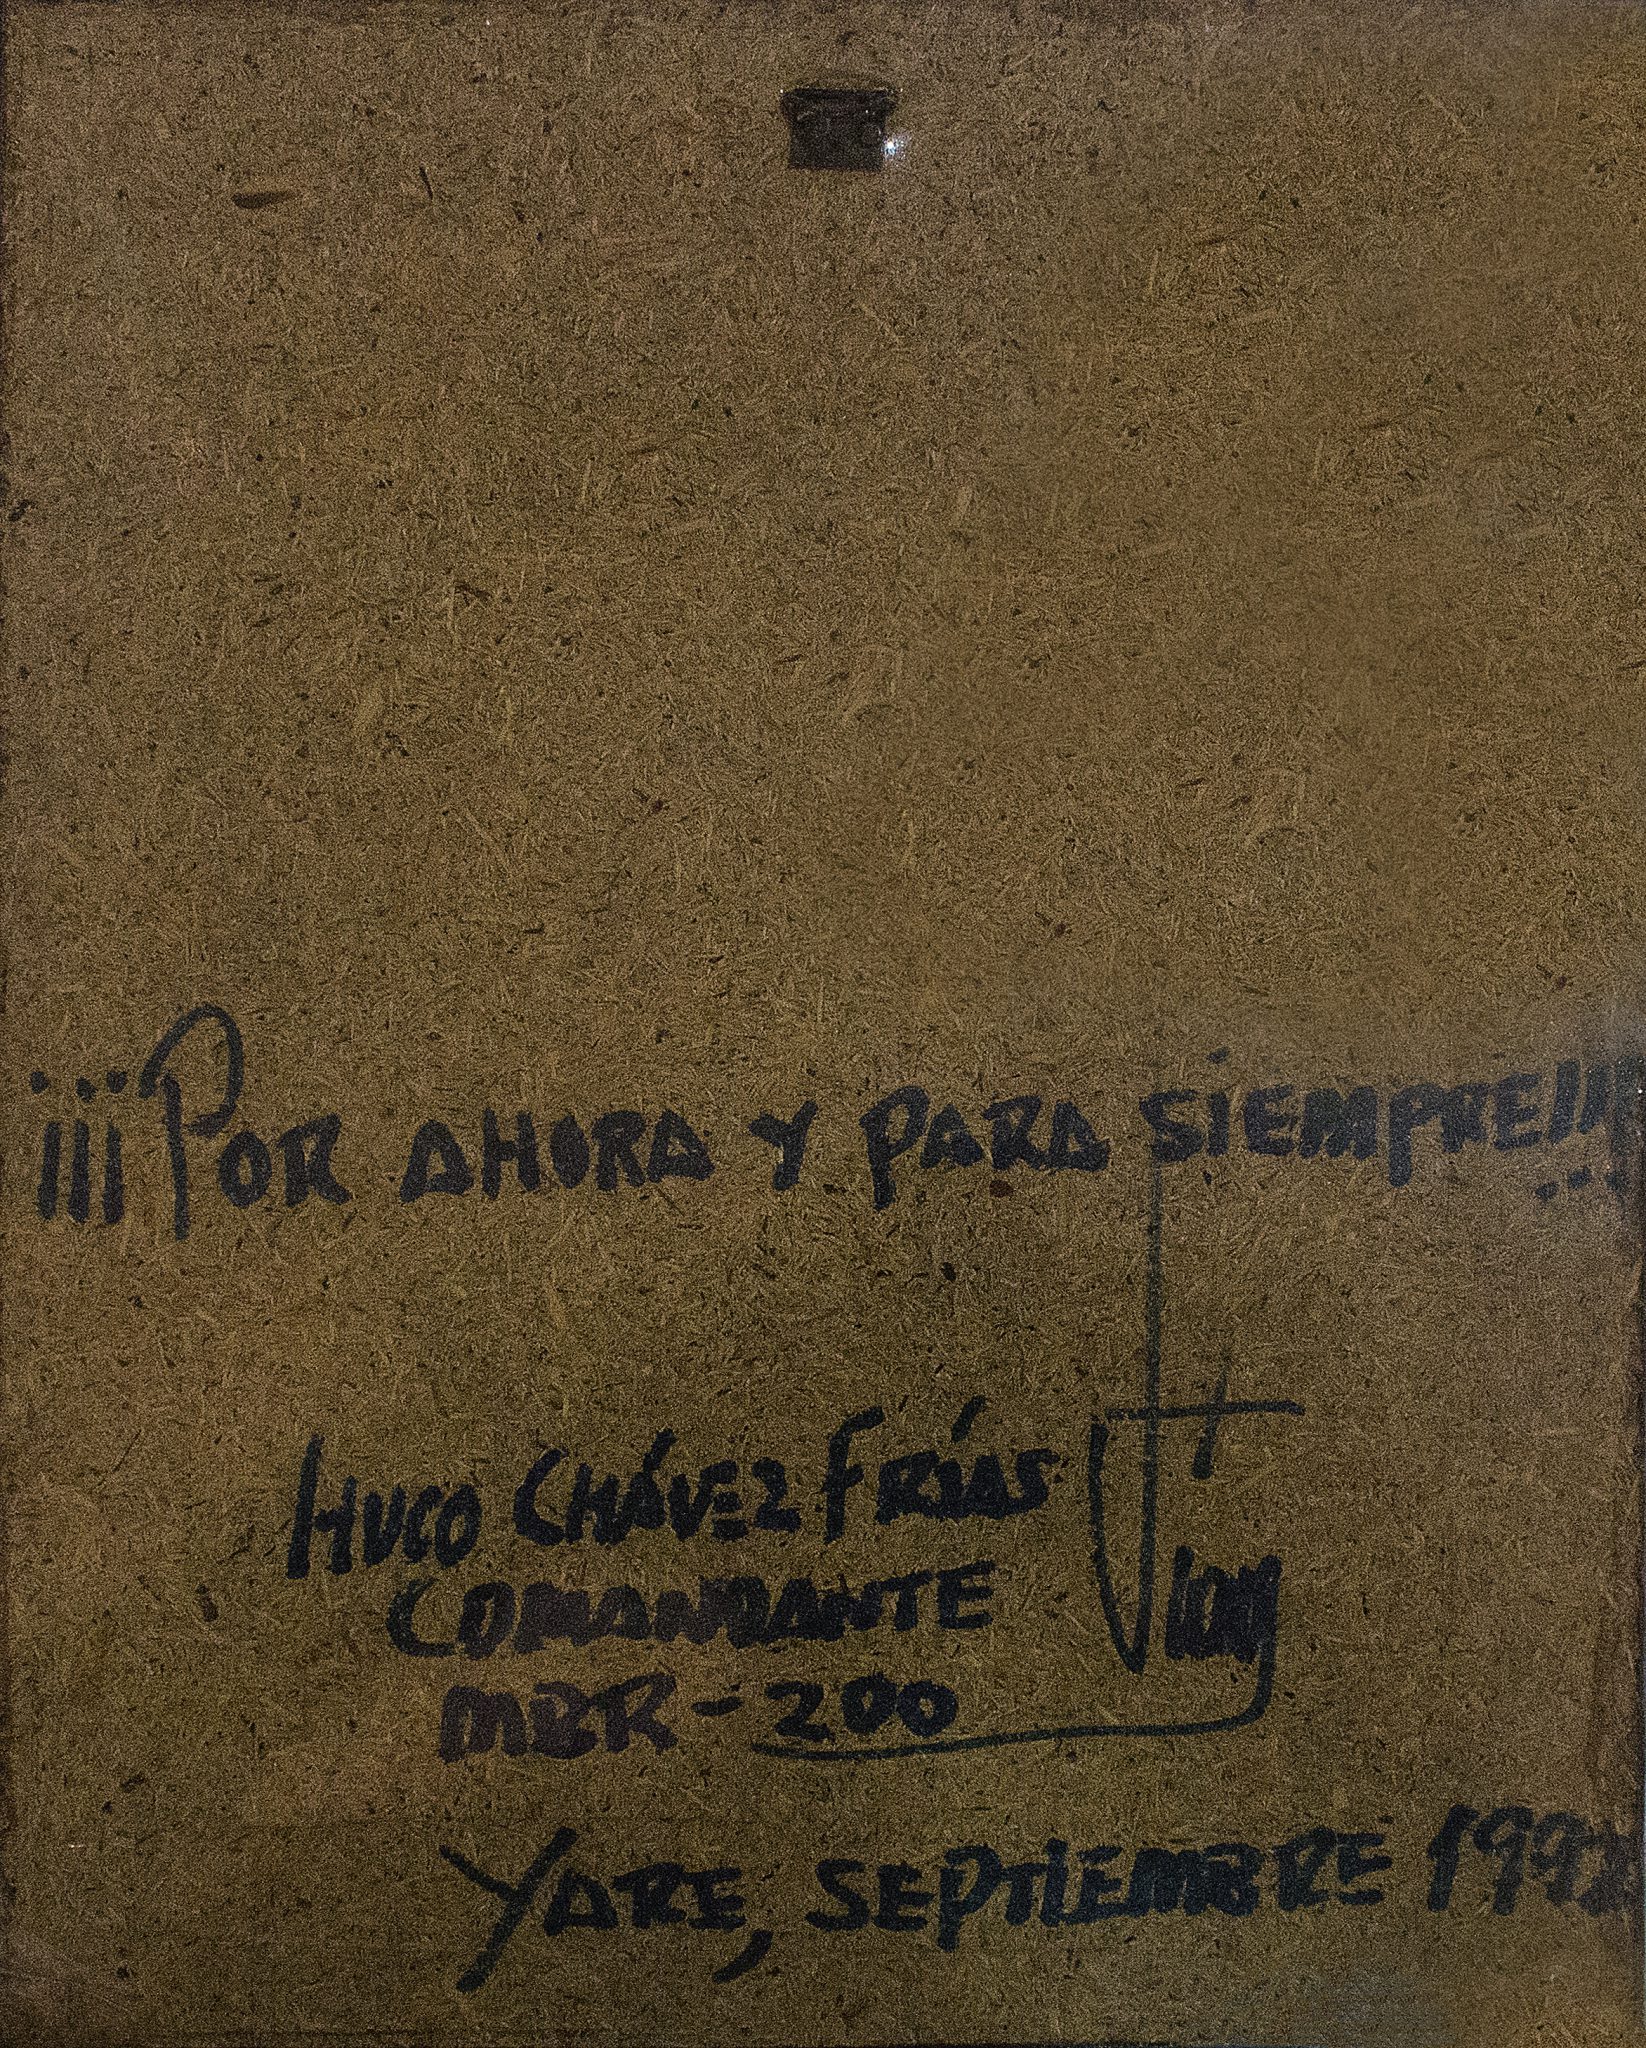 ¡¡¡Por ahora y para siempre!!!
Hugo Chávez Frías
Comandante
MBR-200
Yare, septiembre 1992